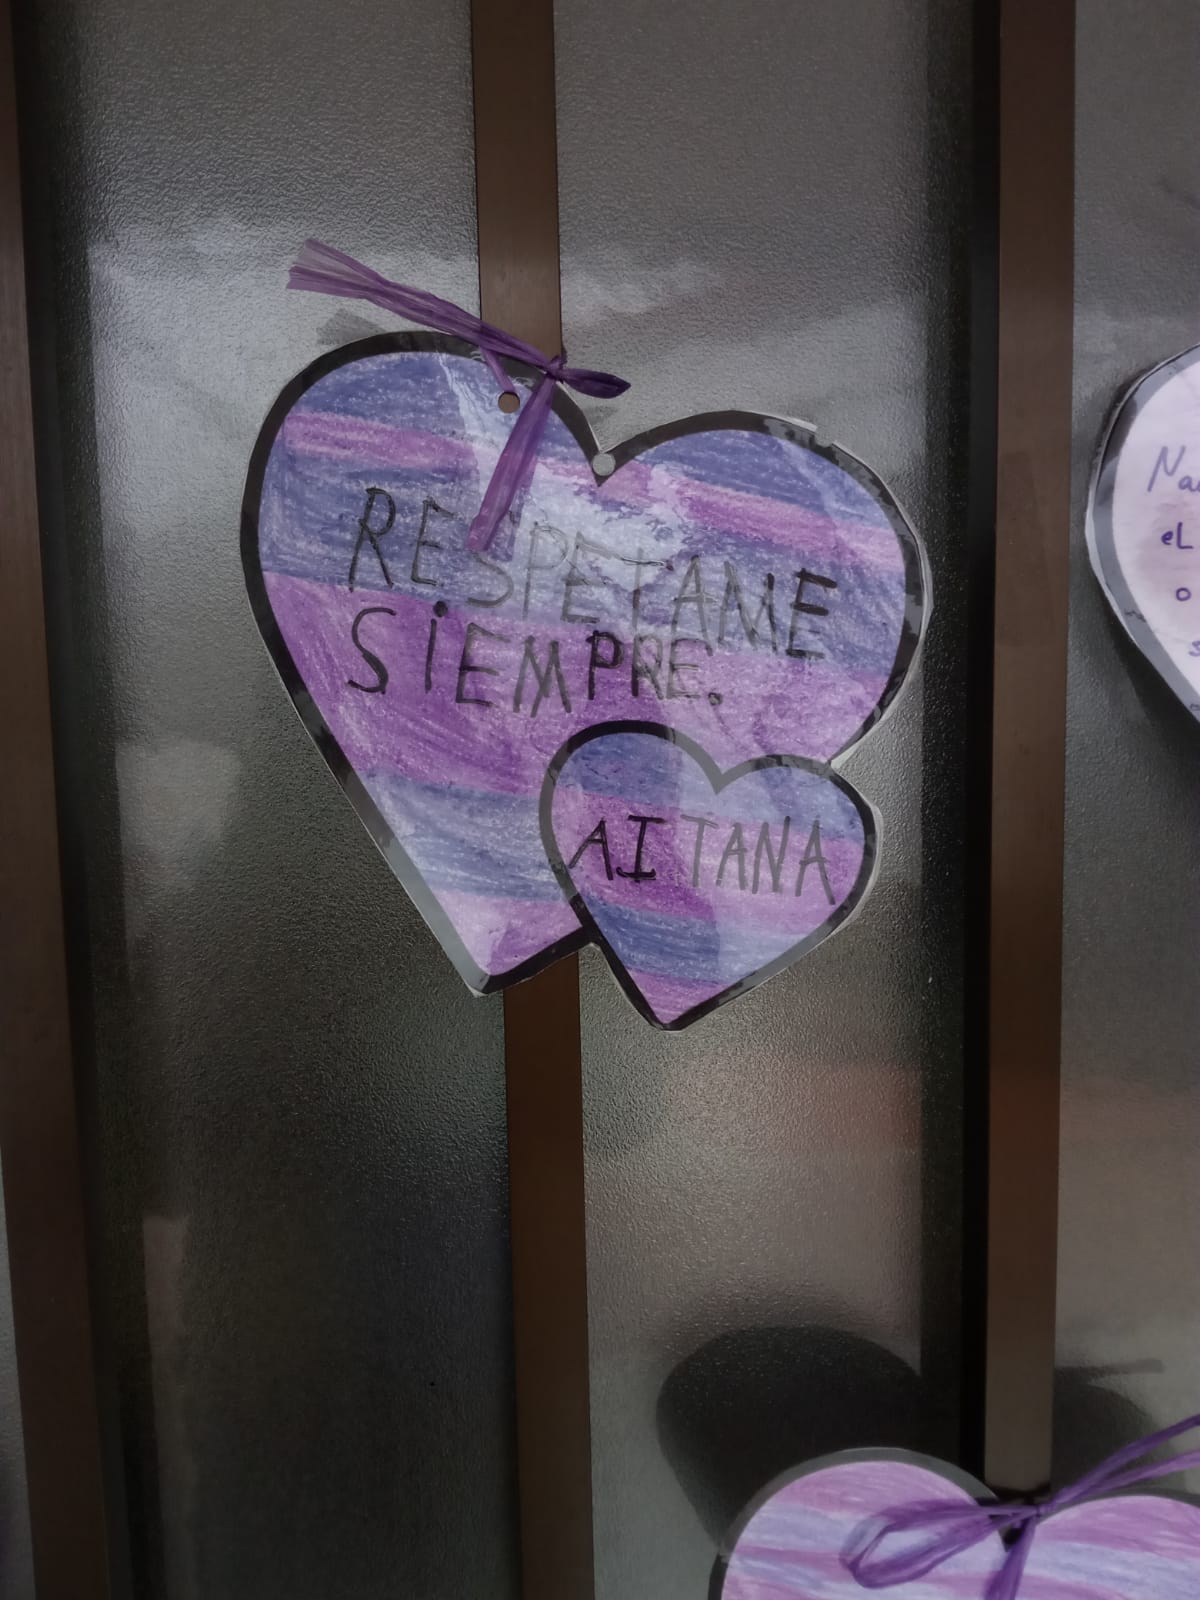 RESPETAME
SiEMPRE.
AITANA
eL
o